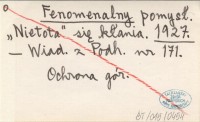 Fenomenalny pomysł.
"Nietota" się kłania. 1927.
— Wiad. z Podh. nr 171.
Ochrona gór.